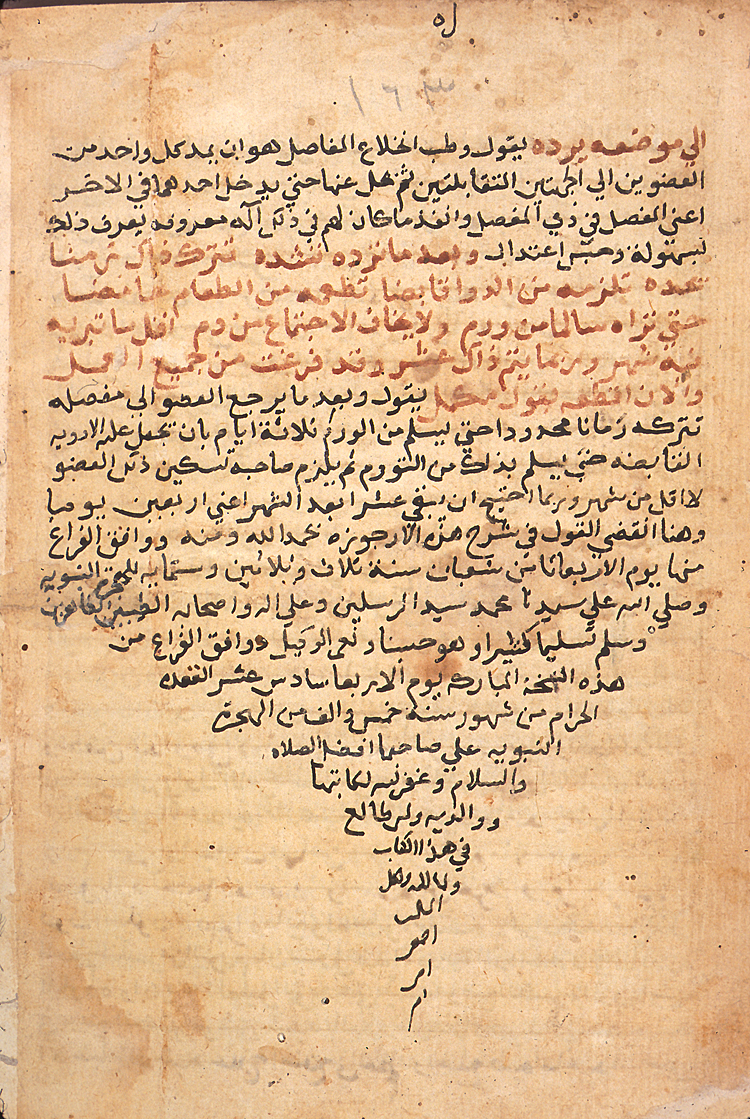 ١٦٣
الي موضعه يرده يقول وطب انخلاع المفاصل هو ان يمد كل واحد من
العضوين الي الجهتين المتقابلتين ثم يحل عنها حتي يدخل احدهما في الاخر
اعني المفصل في ذي المفصل وانفذ ما كان لهم في ذلك آله معروفه يعرف ذلك
بسهولة وحس اعتدال وبعد ما ترده تشده تتركه ذاك زمنا
تحده تلزمه من الدوا قابضا تطعمه من الطعام حامضا
حتي تراه سالما من ورم ولا يخاف الاجتماع من دم اقل ما تبريه
فيه شهر وربما يتم ذاك عشر وقد فرغت من جميع العمل
والان اقطعه بقول مكمل يقول وبعد ما يرجع العضو الي مفصله
تتركه زمانا محدودا حتي يسلم من الورم ثلاثة ايام بان تجعل عليه الادويه
القابضه حتي يسلم بذلك من التورم ثم يلزم صاحبه تسكين ذلك العضو
لا اقل من شهر وربما احتيج ان يبقي عشرا بعد الشهر اعني اربعين يوما
وهنا انقضي القول في شرح هذه الارجوزه بحمد الله ومنه ووافق الفراغ
منها يوم الاربعا من شعبان سنة ثلاث وثلاثين وستمايه للهجرة النبويه
وصلي الله علي سيدنا محمد سيد المرسلين وعلي اله واصحابه الطيبين الطاهرين
وسلم تسليما كثيرا وهو حسبنا ونعم الوكيل ووافق الفراغ من
هذه النسخة المباركه يوم الاربعا سادس عشر القعده
الحرام من شهور سنه خمس والف من الهجرة
النبويه علي صاحبها افضل الصلاه
والسلام وغفر لكاتبها
ووالديه ولمن طالع
في هذا الكتاب
ولكل